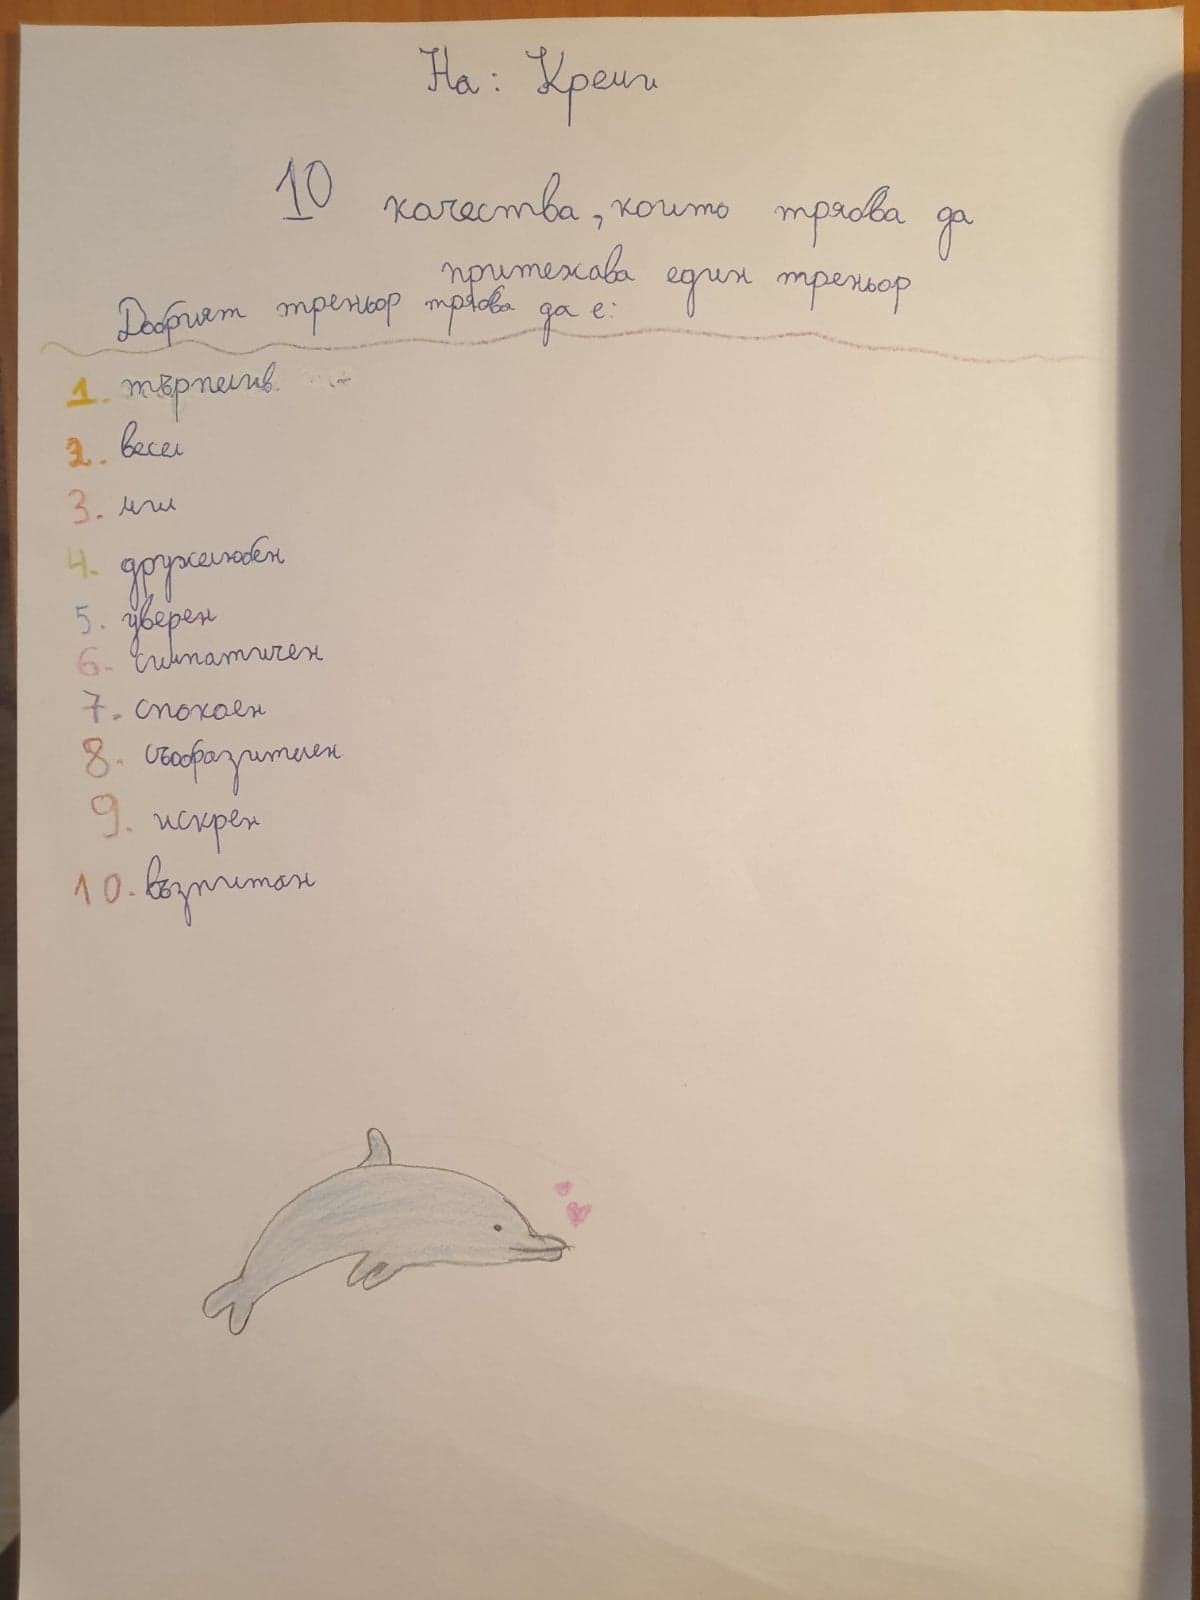 На: Креми
10 качества, които трябва да
притежава един треньор
Добрият треньор трябва да е:
1. търпелив.
2. весел
3. мил
4. дружелюбен
5. уверен
6. симпатичен
7. спокоен
8. съобразителен
9. искрен
10. възпитан